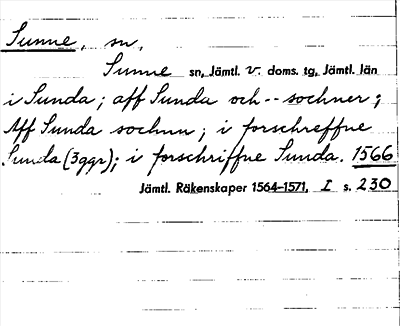 Sunne, sn,
Sunne sn, Jämtl. v. doms. tg, Jämtl. län
i Sunda; aff Sunda och -- sochner;
Aff Sunda sochnn; i forschreffne
Sunda (3ggr); i forschriffne Sunda. 1566
Jämtl. Räkenskaper 1564-1571, I s. 230